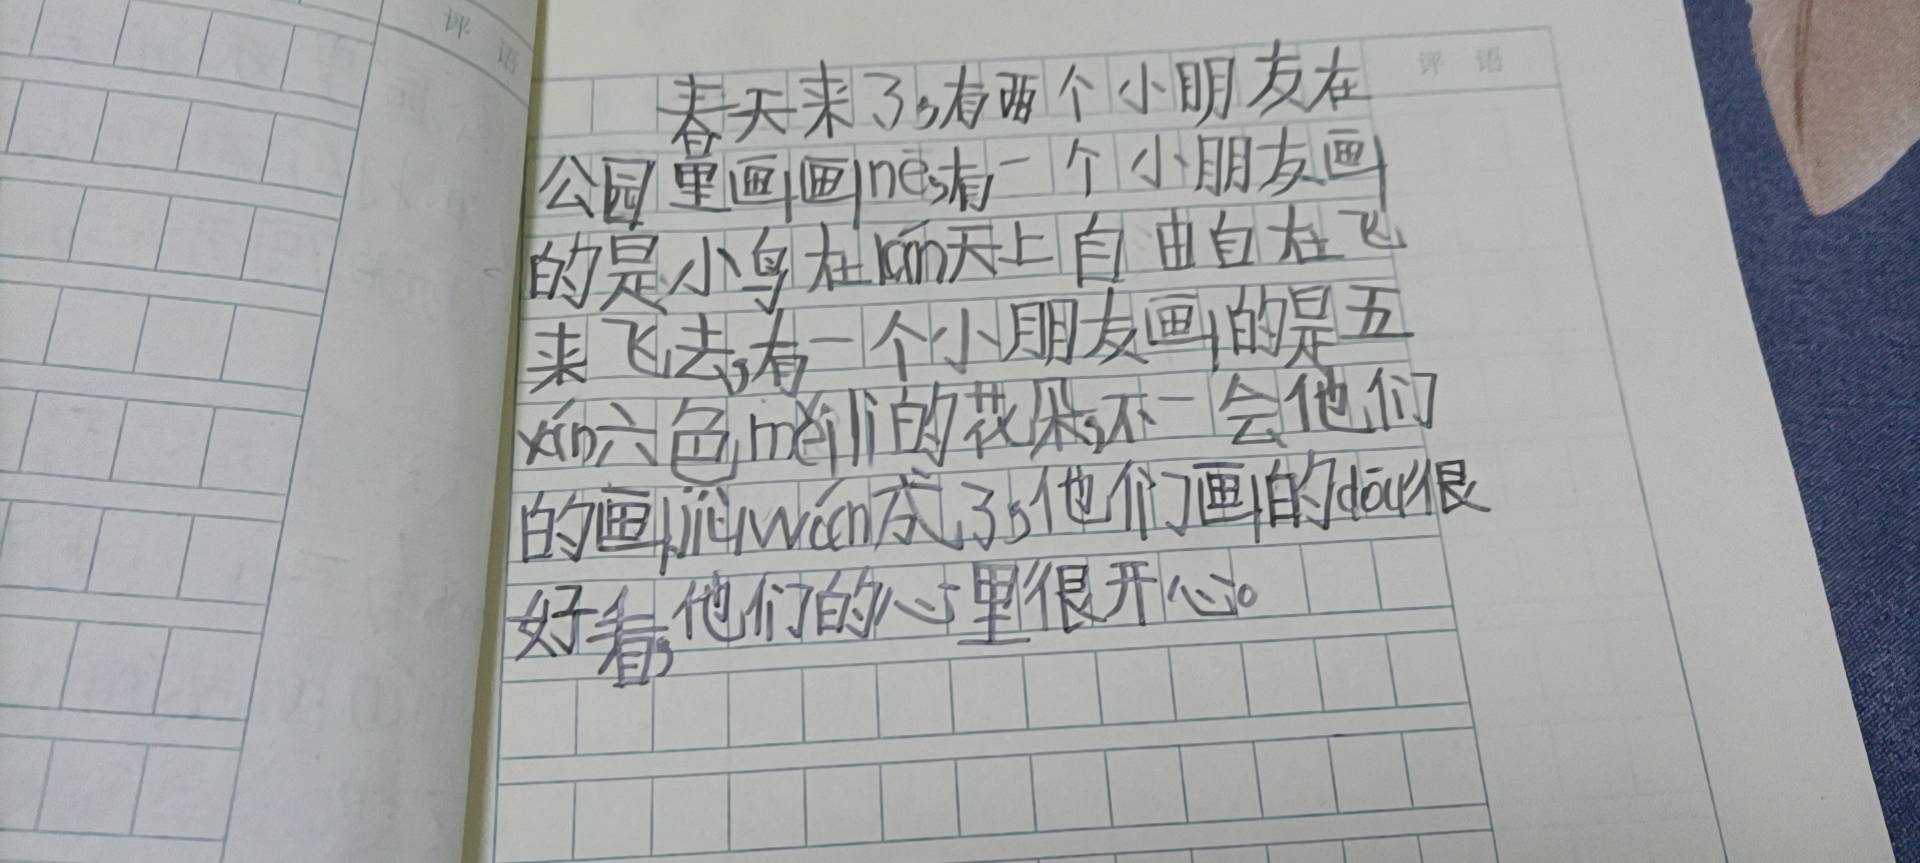 评 语
评 语
春天来了,有两个小朋友在
公园里画画ne,有一个小朋友画
的是小鸟在lán天上自由自在飞
来飞去,有一个小朋友画的是五
yán六色měi lì的花朵,不一会他们
的画jiù wán成了,他们画的dōu很
好看,他们的心里很开心。